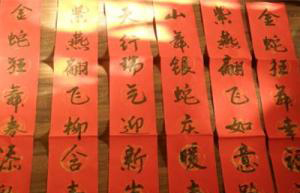 金蛇狂舞
紫燕翩飞如意
山舞银蛇庆暖
天行瑞气迎新
紫燕翩飞柳含
金蛇狂舞春添